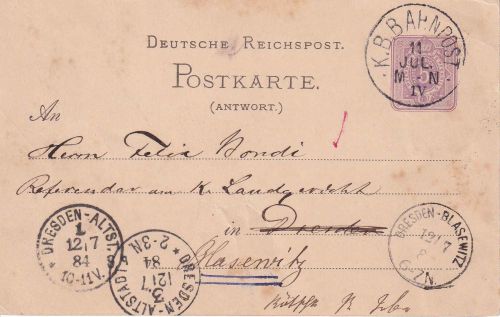 K.B.BAHNPOST.
11
JUL.
M N
IV
DEUTSCHE REICHSPOST.
POSTKARTE.
(ANTWORT.)
An
Herrn Felix Bondi
Referendar am K. Landgericht
in Dresden
Blasewitz
DRESDEN-ALTST.
1
12|7
84
10-11V.
DRESDEN-ALTSTADT
3
12|7
84
2-3N.
DRESDEN-BLASEWITZ
12|7
6-7N.